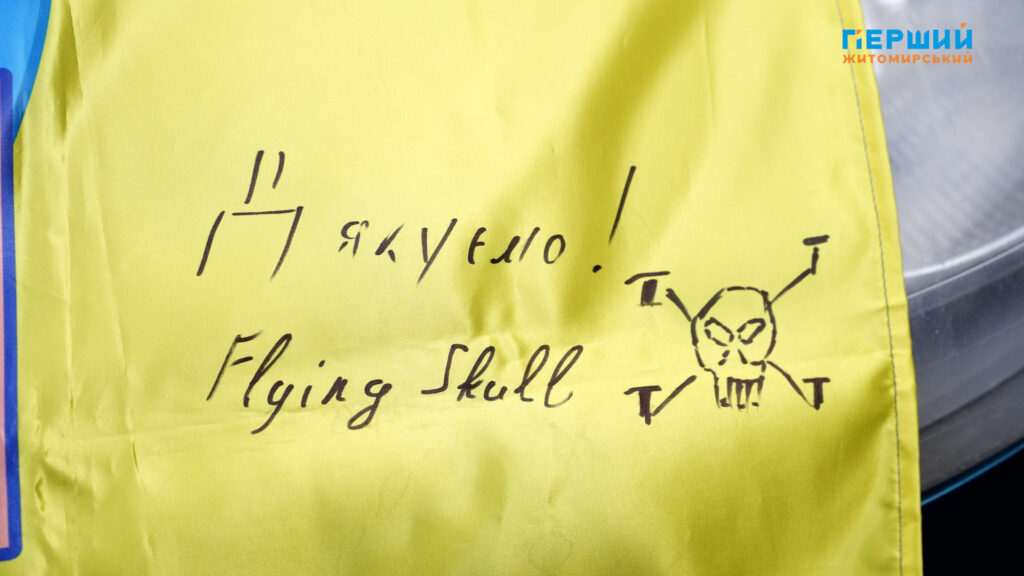 ПЕРШИЙ
ЖИТОМИРСЬКИЙ
Дякуємо!
Flying Skull